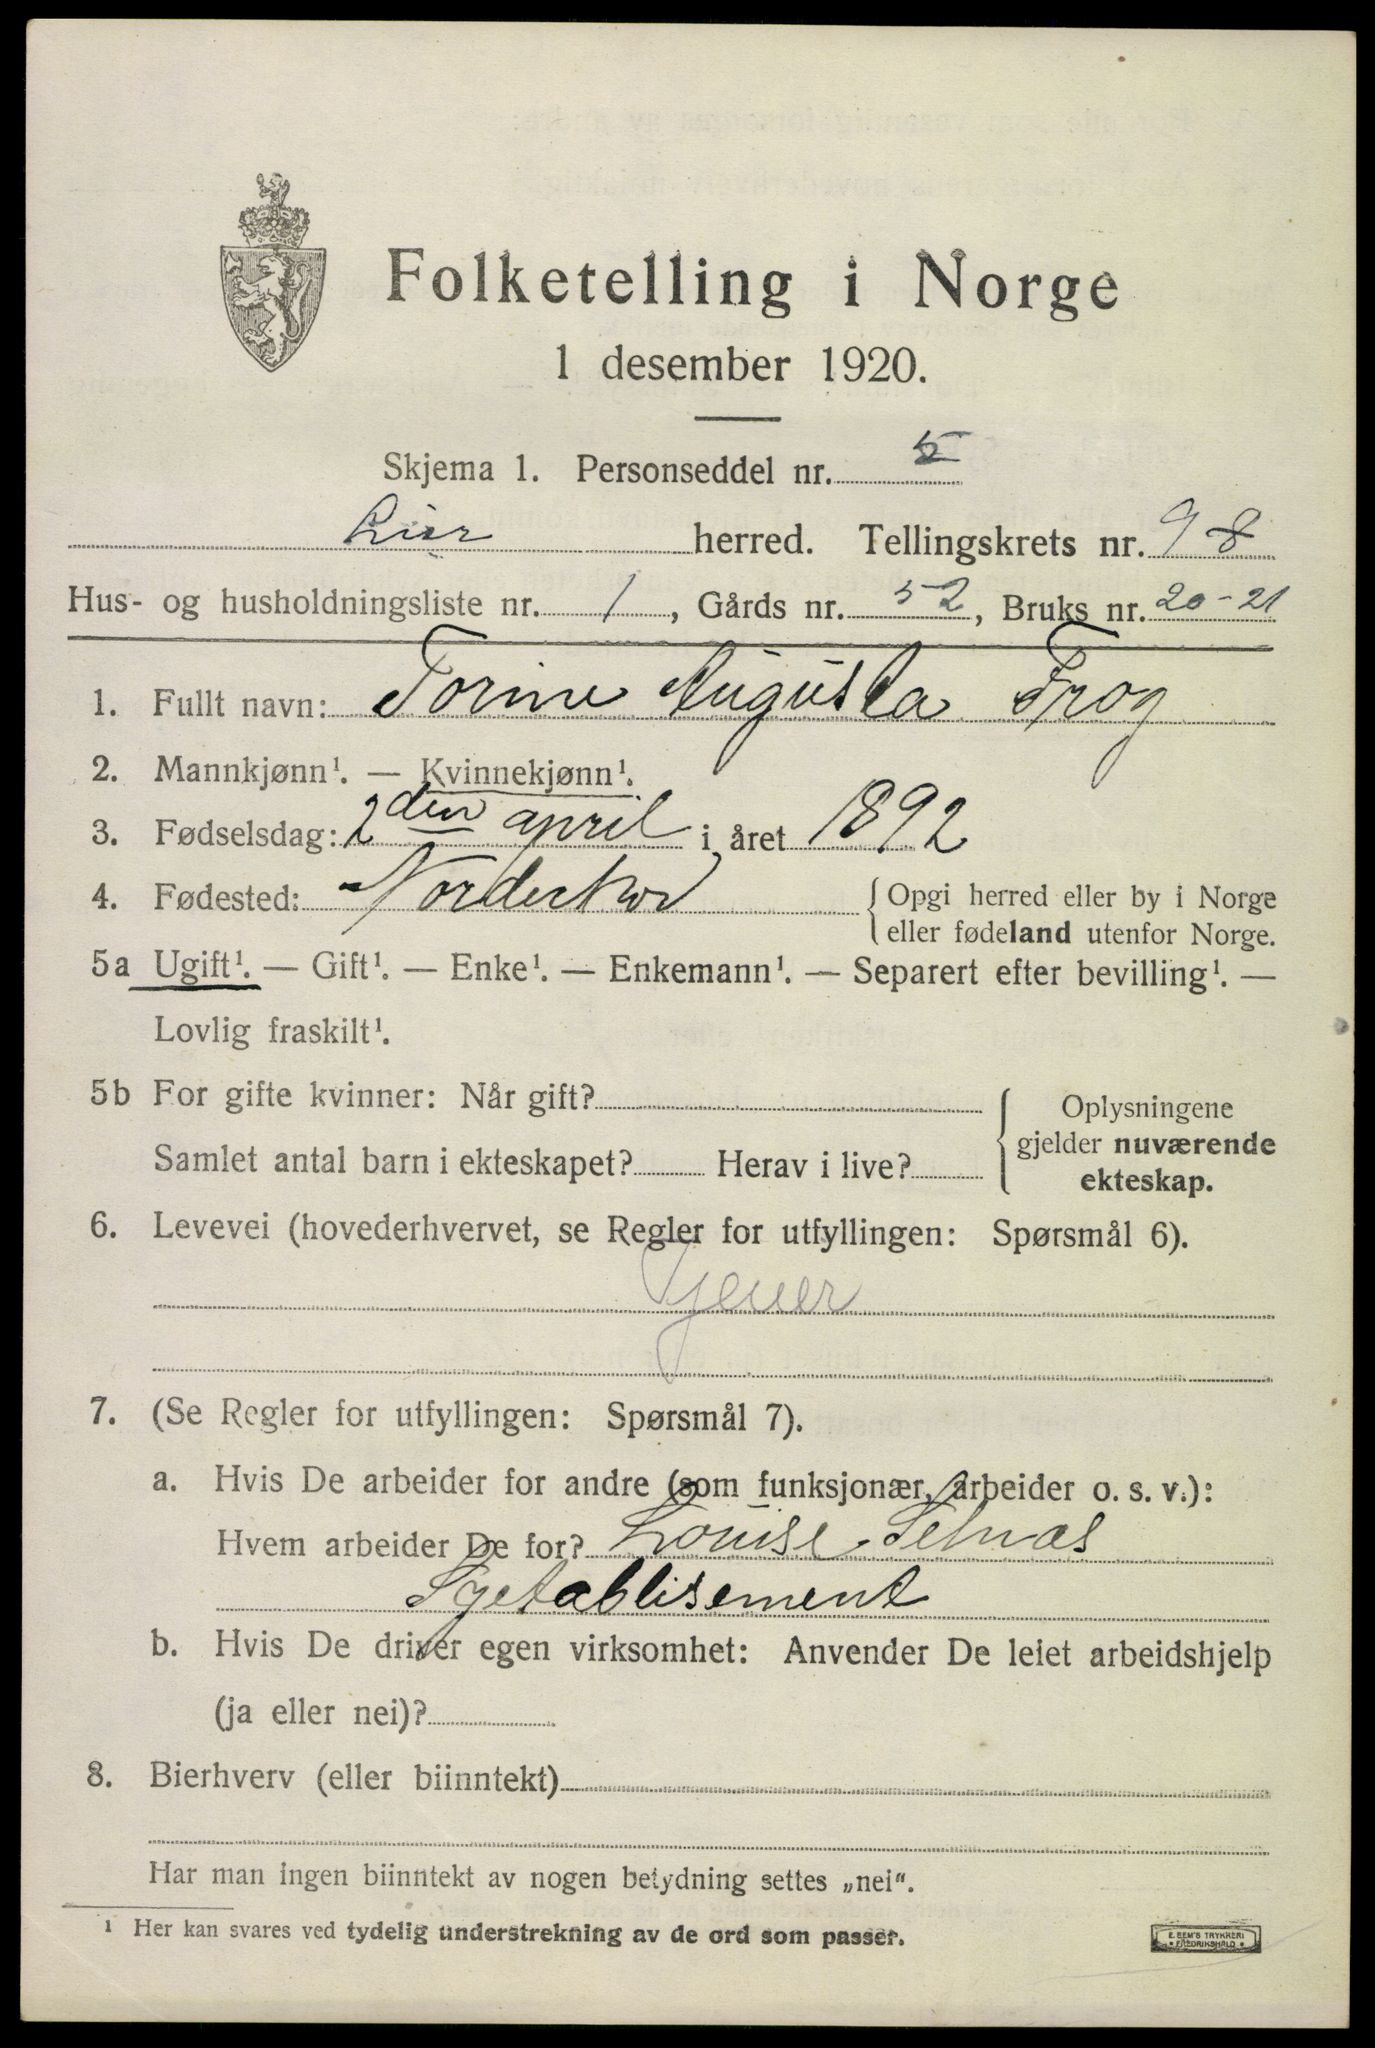 Folketelling i Norge
1 desember 1920.
Skjema 1. Personseddel nr. 5
Lier herred. Tellingskrets nr. 9-8
Hus- og husholdningsliste nr. 1, Gårds nr. 52, Bruks nr. 20-21
1. Fullt navn: Torine Augusta Frog
2. Mannkjønn¹. — Kvinnekjønn¹.
3. Fødselsdag: 2den april i året 1892
4. Fødested: Norderhov {Opgi herred eller by i Norge
eller fødeland utenfor Norge.
5a Ugift¹. — Gift¹. — Enke¹. — Enkemann¹. — Separert efter bevilling¹. —
Lovlig fraskilt¹.
5b For gifte kvinner: Når gift?
Samlet antal barn i ekteskapet? Herav i live?
{Oplysningene
gjelder nuværende
ekteskap.
6. Levevei (hovederhvervet, se Regler for utfyllingen: Spørsmål 6).
7. (Se Regler for utfyllingen: Spørsmål 7).
a. Hvis De arbeider for andre (som funksjonær, arbeider o. s. v.):
Hvem arbeider De for? Louise Selnæs
Syetablisement
b. Hvis De driver egen virksomhet: Anvender De leiet arbeidshjelp
(ja eller nei)?
8. Bierhverv (eller biinntekt)
Har man ingen biinntekt av nogen betydning settes „nei".
¹ Her kan svares ved tydelig understrekning av de ord som passer.
E. SEM'S TRYKKERI
FREDRIKSHALD